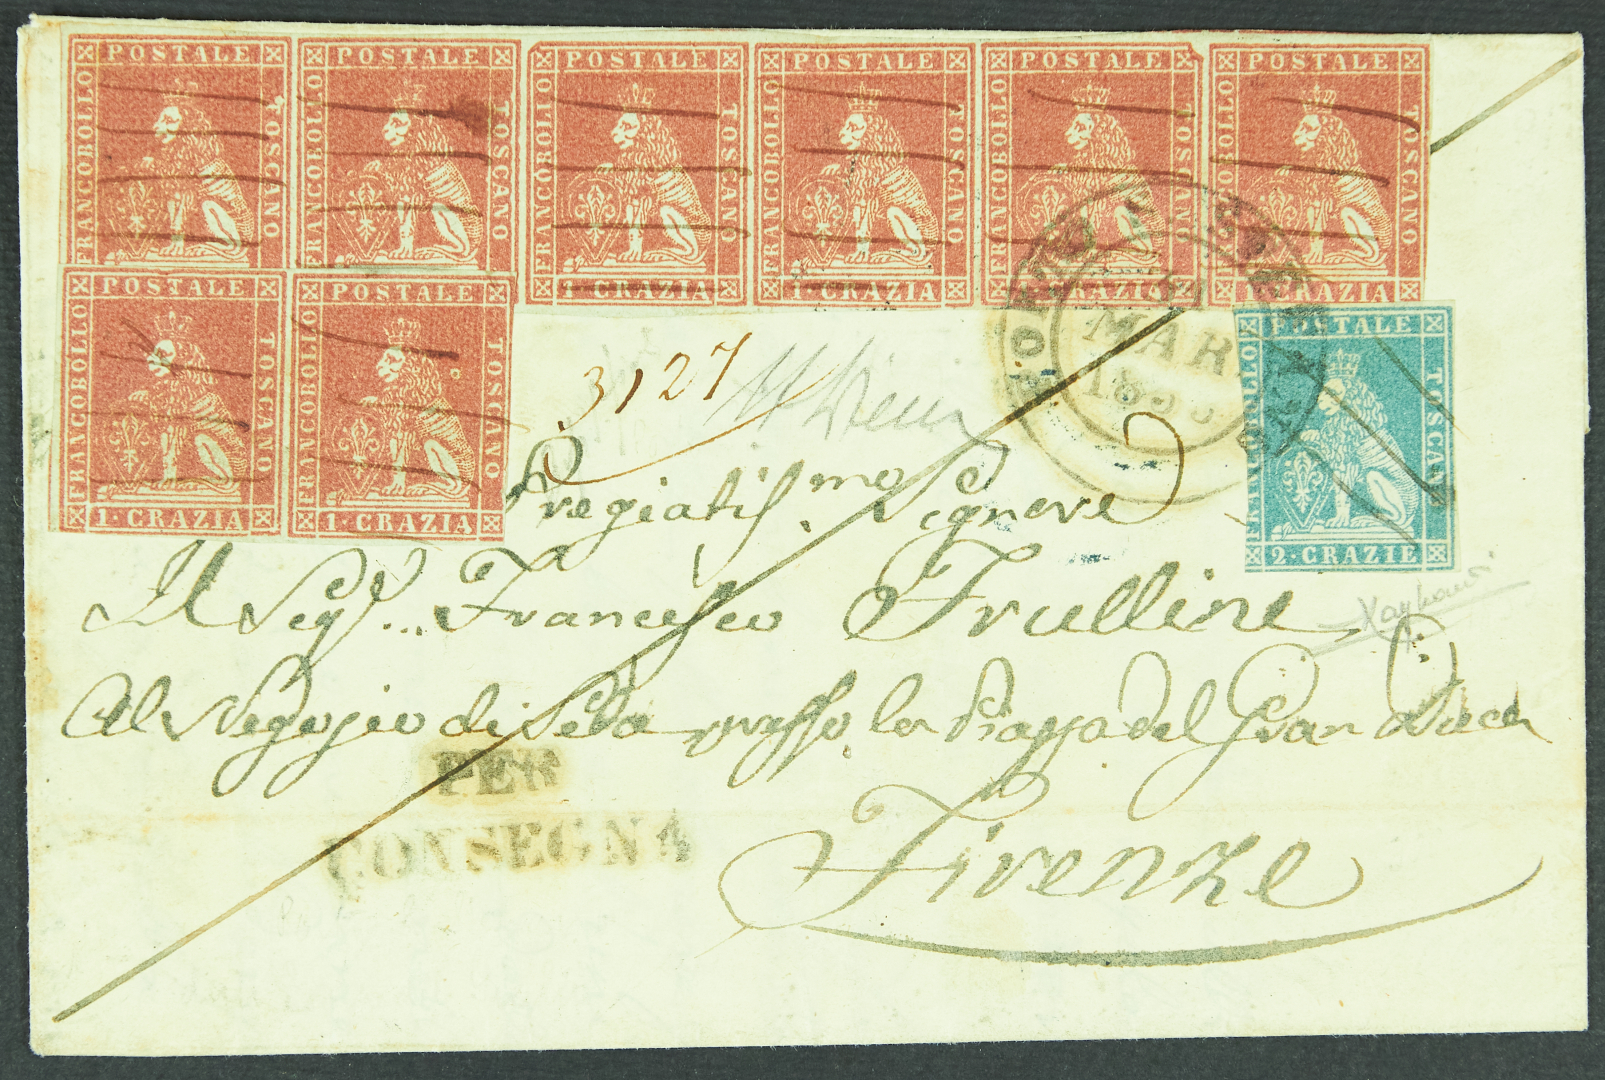 POSTALE POSTALE POSTALE POSTALE POSTALE POSTALE
FRANCOBOLLO TOSCANO FRANCOBOLLO TOSCANO FRANCOBOLLO TOSCANO FRANCOBOLLO TOSCANO FRANCOBOLLO TOSCANO FRANCOBOLLO TOSCANO
1·CRAZIA 1·CRAZIA 1·CRAZIA 1·CRAZIA
POSTALE POSTALE
FRANCOBOLLO TOSCANO FRANCOBOLLO TOSCANO
1·CRAZIA 1·CRAZIA
POSTALE
FRANCOBOLLO TOSCANO
2·CRAZIE
MAR
3127
Pregiatis.mo Signore
Il Sigr... Francesco Frullini
Al Negozio di Seta presso la Piazza del Gran Duca
Firenze
PER
CONSEGNA